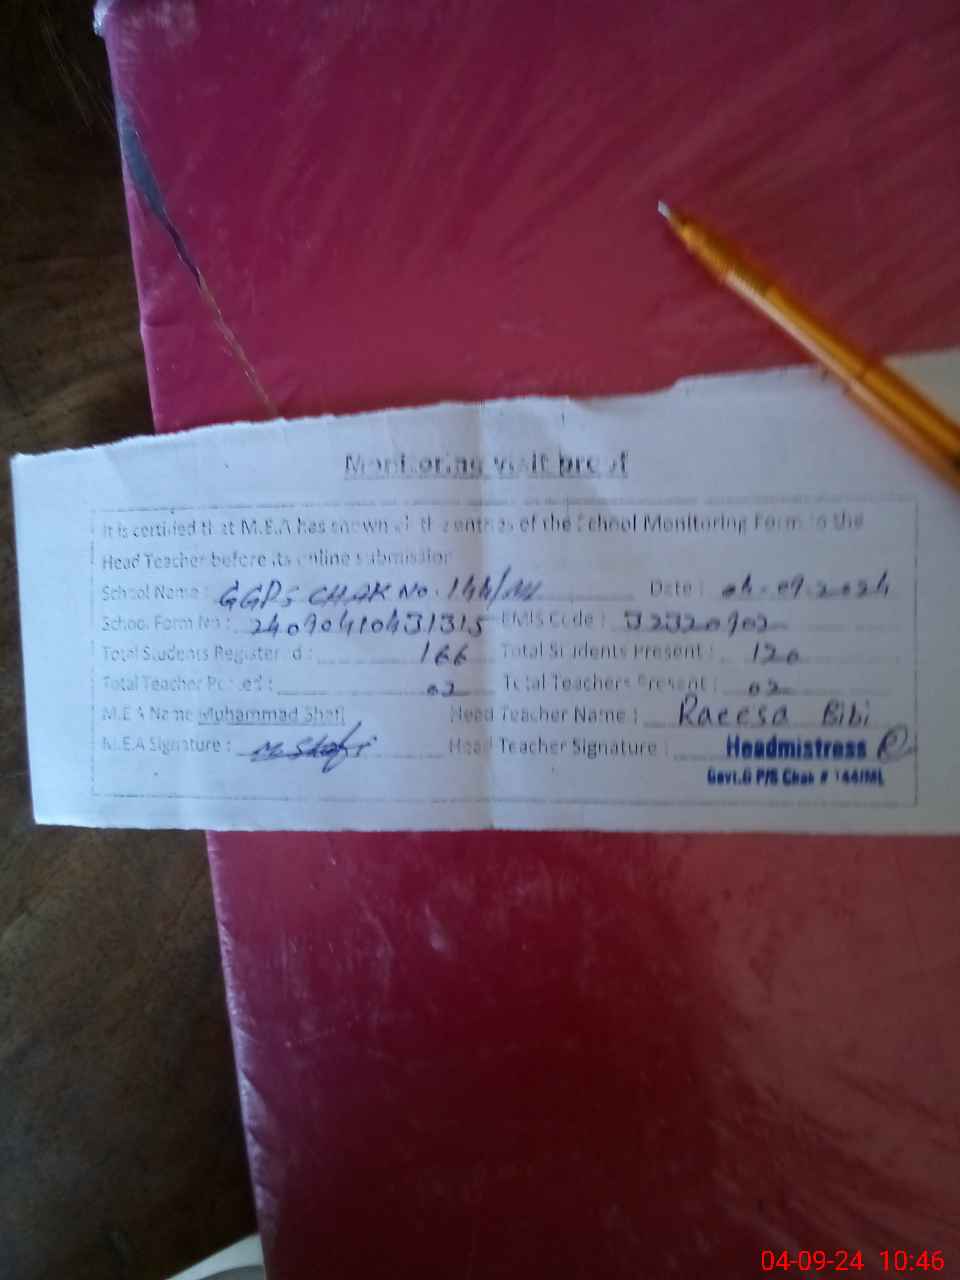 Monitoring visit proof
It is certified that M.E.A has shown all the entries of the School Monitoring Form to the
Head Teacher before its online submission
School Name : GGPS CHAK No. 144/ML Date : 04-09-2024
School Form No : 24090410431315 EMIS Code : 32320902
Total Students Registered : 166 Total Students Present : 120
Total Teacher Posted : 02 Total Teachers Present : 02
M.E.A Name Muhammad Shafi Head Teacher Name : Raeesa Bibi
M.E.A Signature : M. Shafi Head Teacher Signature : Headmistress
Govt.G P/S Chak # 144/ML
04-09-24 10:46